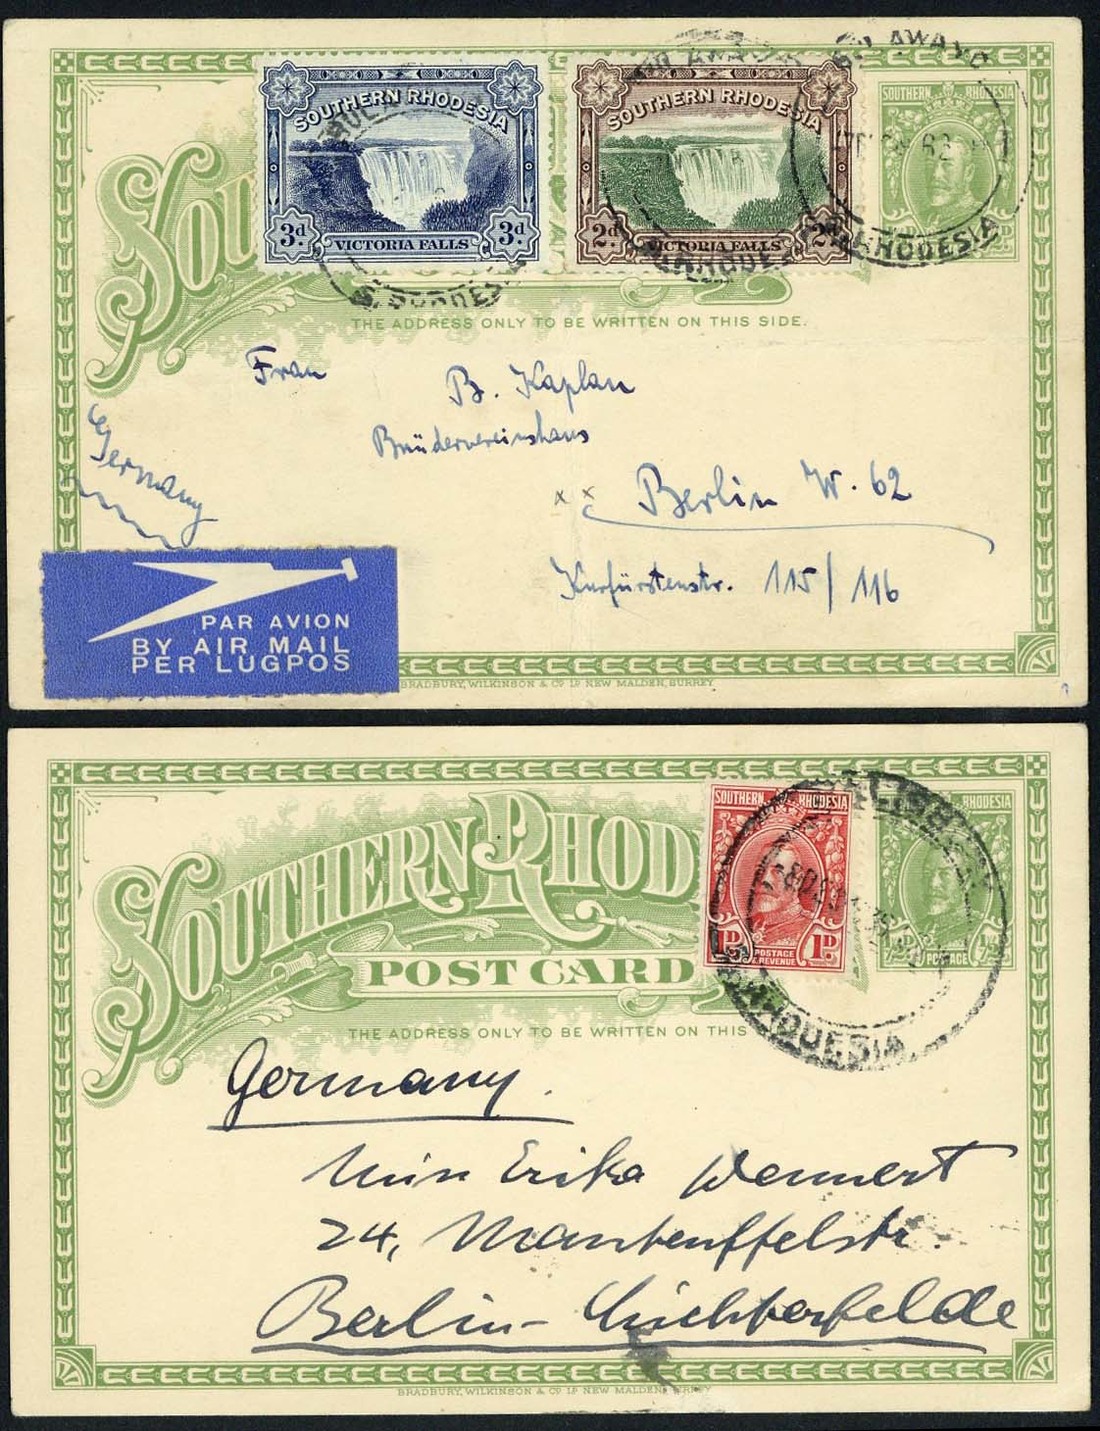 SOUTHERN RHODESIA
3d 3d
VICTORIA FALLS
SOUTHERN RHODESIA
2d 2d
VICTORIA FALLS
SOUTHERN RHODESIA
SOU
S. RHODESIA
THE ADDRESS ONLY TO BE WRITTEN ON THIS SIDE.
Frau B. Kaplan
Brüdervereinshaus
Germany
Berlin W. 62
Kurfürstenstr. 115/116
PAR AVION
BY AIR MAIL
PER LUGPOS
BRADBURY, WILKINSON & Co. Ld. NEW MALDEN, SURREY
SOUTHERN RHOD
POST CARD
SOUTHERN RHODESIA
1D. 1D.
POSTAGE & REVENUE
SOUTHERN RHODESIA
POSTAGE
RHODESIA
THE ADDRESS ONLY TO BE WRITTEN ON THIS
Germany.
Miss Erika Wennert
24, Manteuffelstr.
Berlin-Lichterfelde
BRADBURY, WILKINSON & Co. Ld. NEW MALDEN, SURREY